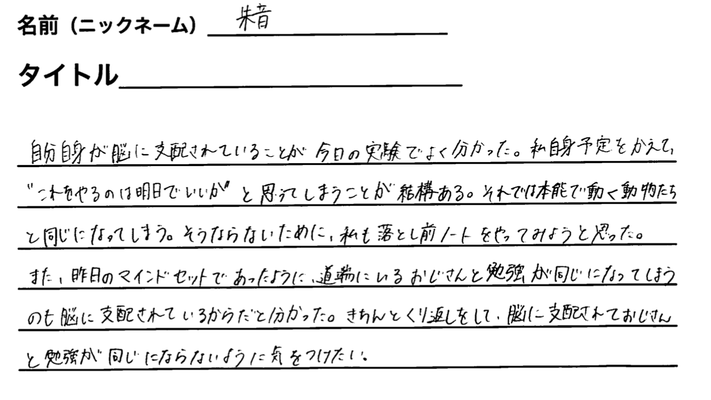 名前（ニックネーム） 朱音
タイトル
自分自身が脳に支配されていることが今日の実験でよく分かった。私自身予定をかえて、
"これをやるのは明日でいいか"と思ってしまうことが結構ある。それでは本能で動く動物たち
と同じになってしまう。そうならないために、私も落とし前ノートをやってみようと思った。
また、昨日のマインドセットであったように、道端にいるおじさんと勉強が同じになってしまう
のも脳に支配されているからだと分かった。きちんとくり返しをして、脳に支配されておじさん
と勉強が同じにならないように気をつけたい。